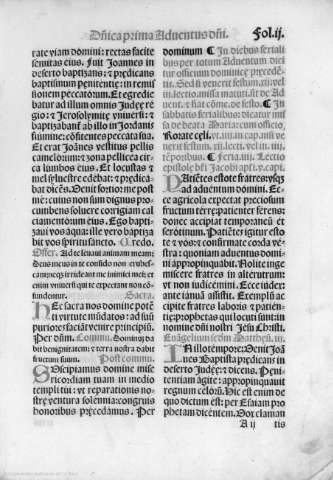 Dñica prima Aduentus dñi. Fol.ij.
rate viam domini: rectas facite
semitas eius. Fuit Joannes in
deserto baptizans: & p̃dicans
baptismum penitentie: in remis
sionem peccatorum. Et egredie
batur ad illum omnis Judeę re
gio: & Jerosolymitę vniuersi: &
baptizabanť ab illo in Jordanis
flumine: cõfitentes peccata sua.
Et erat Joãnes vestitus pellis
camelorum: et zona pellicea cir
ca lumbos eius. Et locustas &
mel syluestre edebat: & p̃dica
bat dicẽs. Uenit fortior me post
me: cuius non sum dignus pro
cumbens soluere corrigiam cal
ciamentorum eius. Ego bapti
zaui vos aqua: ille vero baptiza
bit vos spiritu sancto. Credo.
Offer. Ad te leuaui animam meam:
Deus meus in te confido non erubes
cam: neq irrideant me inimici mei: et
enim vniuersi qui te expectant non cõ
fundentur. Sacra.
HEc sacra nos domine potẽ
ti virtute mũdatos: ad suũ
puriores faciãt venire principiũ.
Per dñm. Commu. Dominus da
bit benignitatem: & terra nostra dabit
fructum suum. Post commu.
SUscipiamus domine mise
ricordiam tuam in medio
templi tui: vt reparationis no
strę ventura solennia: congruis
honoribus pręcedamus. Per
dominum ¶ In diebus feriali
bus per totum Aduentum. dici
tur officium dominice pręcedẽ
tis.
et lectio missa maturi. fit de Ad
uent. & fiat cõme. de festo. ¶ In
sabbatis ferialibus: dicatur mis
sa de beata Maria: cum officio,
Rorate cęli.
¶ Feria.iiij. Lectio
epistole bti Jacobi apťi. v. capi.
PAtiẽtes estote fratres: vsq
ad aduentum domini. Ec
ce agricola expectat preciosum
fructum terrę patienter ferens:
donec accipiat temporaneũ et
serotinum. Patiẽtes igitur esto
te & vos: & confirmate corda ve
stra: quoniam aduentus domi
ni appropinquabit. Nolite inge
miscere fratres in alterutrum:
vt non iudicemini. Ecce iudex
ante ianuã assistit. Exemplũ ac
cipite fratres laboris & patien
tię: prophetas qui locuti sunt: in
nomine dñi nostri Jesu Christi.
Euangelium scdm Matthęũ. iij.
IN illo tempore: Uenit Joã
nes Baptista prędicans in
deserto Judeę: & dicens. Peni
tentiam agite: appropinquauit
regnum celorũ. Hic est enim de
quo dictum est: per Esaiam pro
phetam dicentem. Vox claman
A ij tis